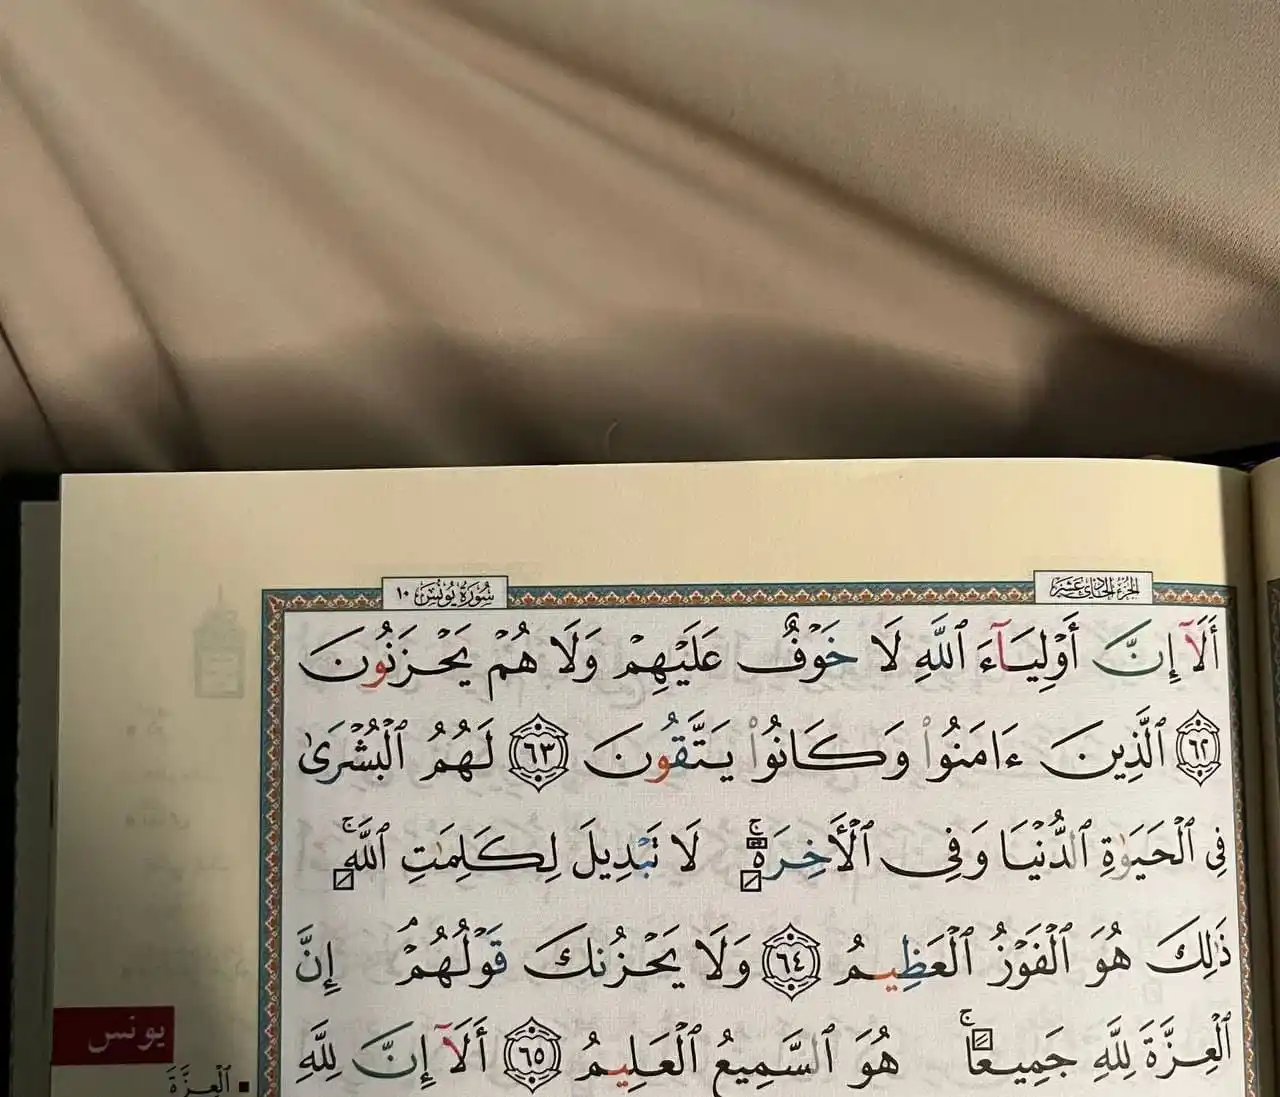 الجزء الحادي عشر
سورة يونس ١٠
أَلَآ إِنَّ أَوْلِيَآءَ ٱللَّهِ لَا خَوْفٌ عَلَيْهِمْ وَلَا هُمْ يَحْزَنُونَ
٦٢ ٱلَّذِينَ ءَامَنُوا۟ وَكَانُوا۟ يَتَّقُونَ ٦٣ لَهُمُ ٱلْبُشْرَىٰ
فِى ٱلْحَيَوٰةِ ٱلدُّنْيَا وَفِى ٱلْأَخِرَةِ ۚ لَا تَبْدِيلَ لِكَلِمَٰتِ ٱللَّهِ ۚ
ذَٰلِكَ هُوَ ٱلْفَوْزُ ٱلْعَظِيمُ ٦٤ وَلَا يَحْزُنكَ قَوْلُهُمْ ۘ إِنَّ
ٱلْعِزَّةَ لِلَّهِ جَمِيعًا ۚ هُوَ ٱلسَّمِيعُ ٱلْعَلِيمُ ٦٥ أَلَآ إِنَّ لِلَّهِ
يونس
ٱلْعِزَّةَ